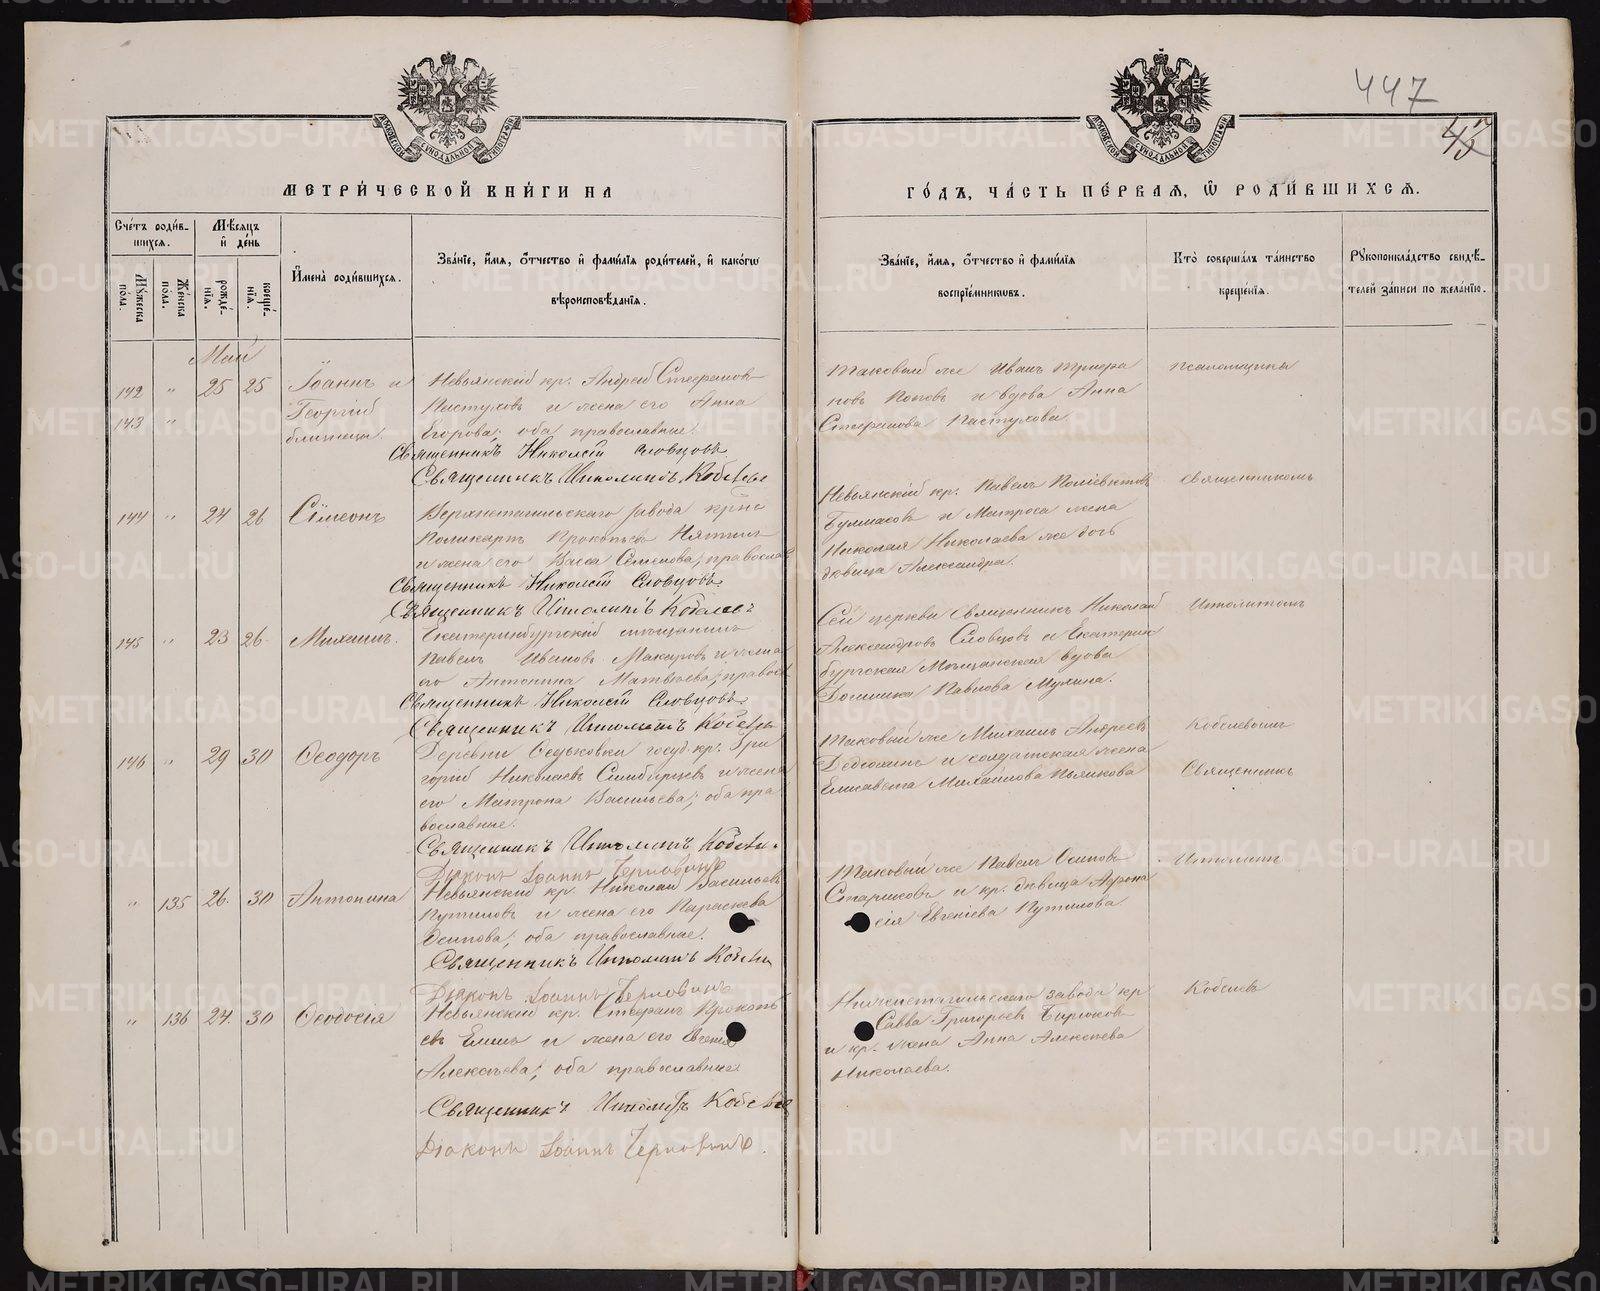 447
МОСКОВСКОЙ СѴНОДАЛЬНОЙ ТИПОГРАФІИ
МОСКОВСКОЙ СѴНОДАЛЬНОЙ ТИПОГРАФІИ
МЕТРИ́ЧЕСКОЙ КНИ́ГИ НА
ГО́ДЪ, ЧА́СТЬ ПЕ́РВАЯ, Ѡ РОДИ́ВШИХСЯ.
Сче́тъ роди́в-
шихся.
Мѣ́сяцъ
и҆ де́нь
Му́жеска по́ла.
Же́нска по́ла.
рожде́-нїя.
креще́-нїя.
И҆мена̀ роди́вшихся.
Зва́нїе, и҆́мя, ѻ҆́тчество и҆ фами́лїя роди́телей, и҆ како́гѡ
вѣроисповѣ́данїя.
Зва́нїе, и҆́мя, ѻ҆́тчество и҆ фами́лїя
воспрїе́мниковъ.
Кто̀ соверша́лъ та́инство
креще́нїя.
Рꙋкоприкла́дство свидѣ́-
телей за́писи по жела́нїю.
Май
142 " 25 25 Іоаннъ и
143 " Георгій
близнецы.
Невьянскій кр. Андрей Стефановъ
Пастуховъ и жена его Анна
Егорова; оба православные.
Священникъ Николай Словцовъ
Священникъ Ипполитъ Кобелевъ
Таковый же Иванъ
новъ Поповъ и вдова Анна
Стефанова Пастухова.
псаломщика
144 " 24 26 Сімеонъ
Верхнетагильскаго завода
Поликарпъ Прокопьевъ
и жена его Васса Семенова; православ
Священникъ Николай Словцовъ
Священникъ Ипполитъ Кобелевъ
Невьянскій кр. Павелъ Поліевктовъ
и Матроса жена
Николая Николаева же дочь
дѣвица Александра.
Священникомъ
145 " 23 26 Михаилъ.
Екатеринбургскій мѣщанинъ
Павелъ Ивановъ Макаровъ и жена
его Антонина Матвѣева; правос
Священникъ Николай Словцовъ
Священникъ Ипполитъ Кобелевъ
Сей церкви Священникъ Николай
Александровъ Словцовъ и Екатерин
бургская Мѣщанская вдова
Павлова Мулина.
Ипполитомъ
146 " 29 30 Ѳеодоръ
Деревни Ѳедьковки госуд. кр. Гри
горій Николаевъ и жена
его Матрона Васильева; оба пра
вославные.
Священникъ Ипполитъ Кобелевъ
Діаконъ Іоаннъ
Таковый же Михаилъ Андреевъ
Дедюхинъ и солдатская жена
Елисавета Михайлова Пьянкова
Кобелевымъ
Священникъ
" 135 26. 30 Антонина
Невьянскій кр. Николай Васильевъ
Путиловъ и жена его Параскева
Осипова; оба православные.
Священникъ Ипполитъ Кобелевъ
Діаконъ Іоаннъ
Таковый же Павелъ Осиповъ
Стариковъ и кр. дѣвица Афана
сія Евгеніева Путилова.
Ипполитъ
" 136 27. 30 Ѳеодосія
Невьянскій кр. Стефанъ Прокопь
евъ и жена его Евгенія
Алексѣева; оба православные
Священникъ Ипполитъ Кобелевъ
Діаконъ Іоаннъ
Нижнетагильскаго завода кр.
Савва Григорьевъ Бирюковъ
и кр. жена Анна Алексѣева
Николаева.
Кобелевъ
METRIKI.GASO-URAL.RU